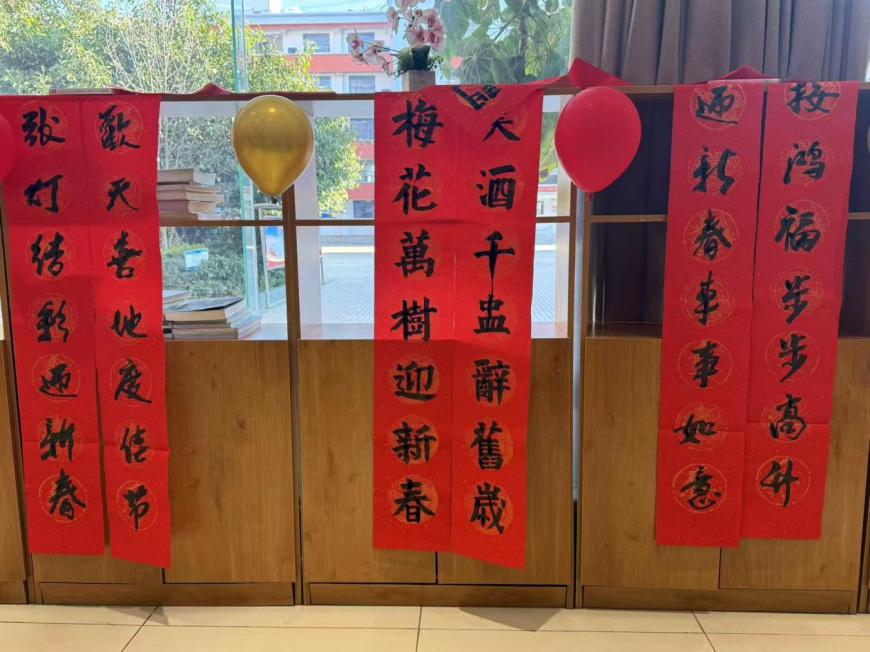 接鸿福步步高升
迎新春事事如意
酒千盅辭舊歲
梅花萬樹迎新春
歡天喜地度佳节
张灯结彩迎新春